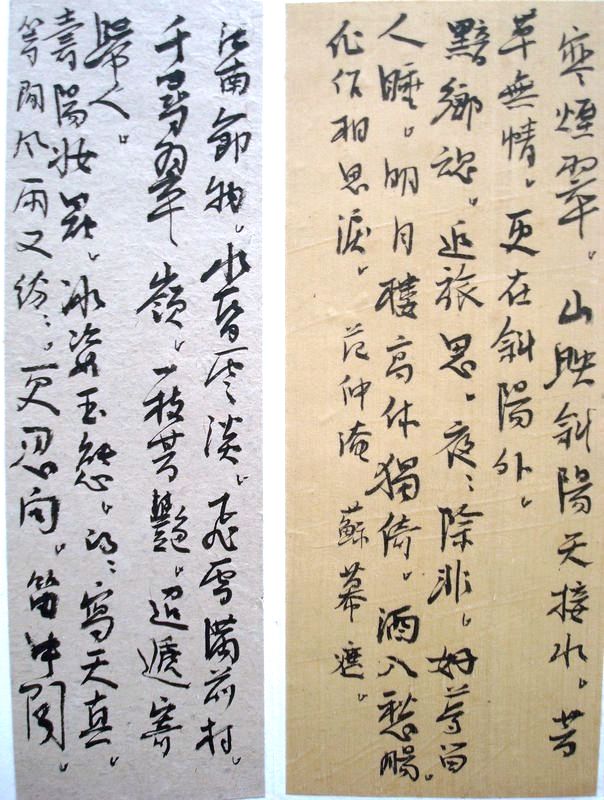 寒煙翠。山映斜陽天接水。芳
草無情。更在斜陽外。
黯鄉魂。追旅思。夜〻除非。好夢留
人睡。明月樓高休獨倚。酒入愁腸。
化作相思淚。范仲淹 蘇幕遮。
江南節物。水昏雲淡。飛雪滿前村。
千尋翠嶺。一枝芳艷。迢遞寄
歸人。
壽陽妝罷。冰姿玉態。的〻寫天真。
等閒风雨又紛〻。更忍向。笛中聞。